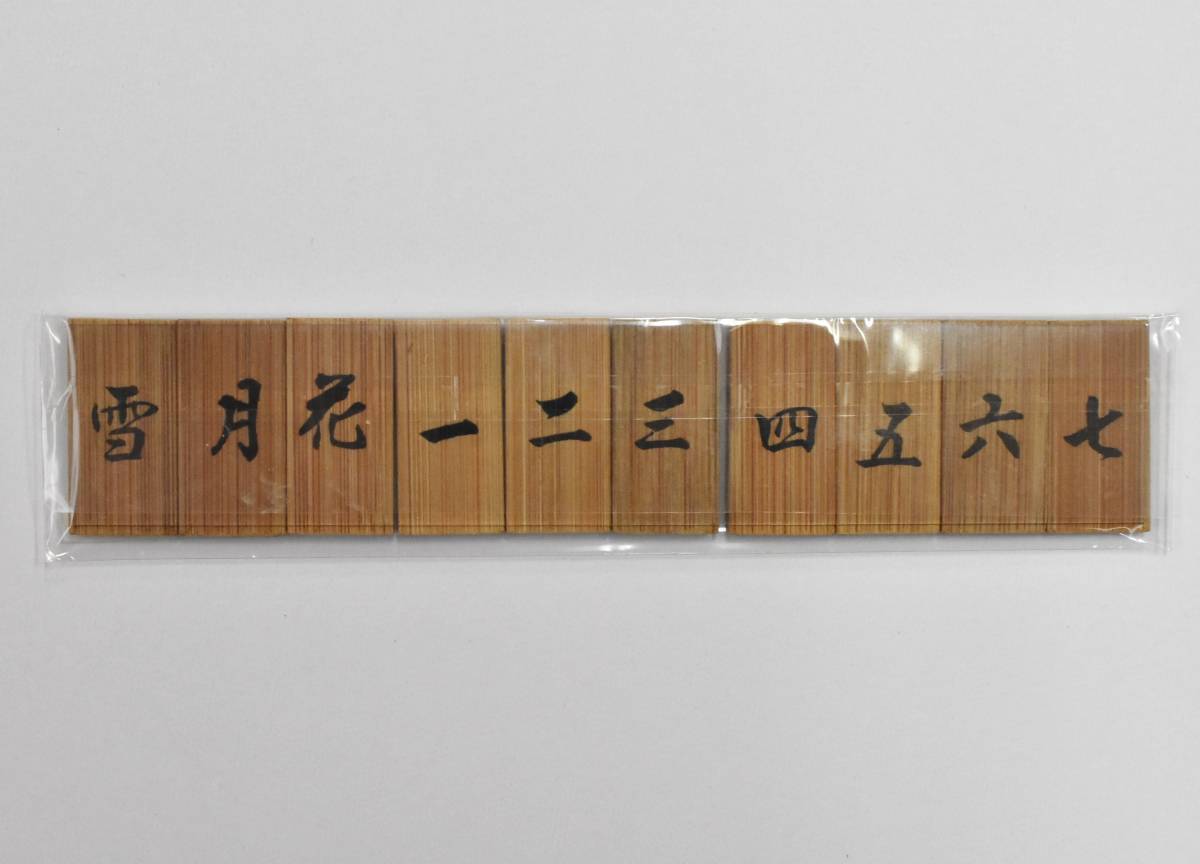 雪月花一二三四五六七